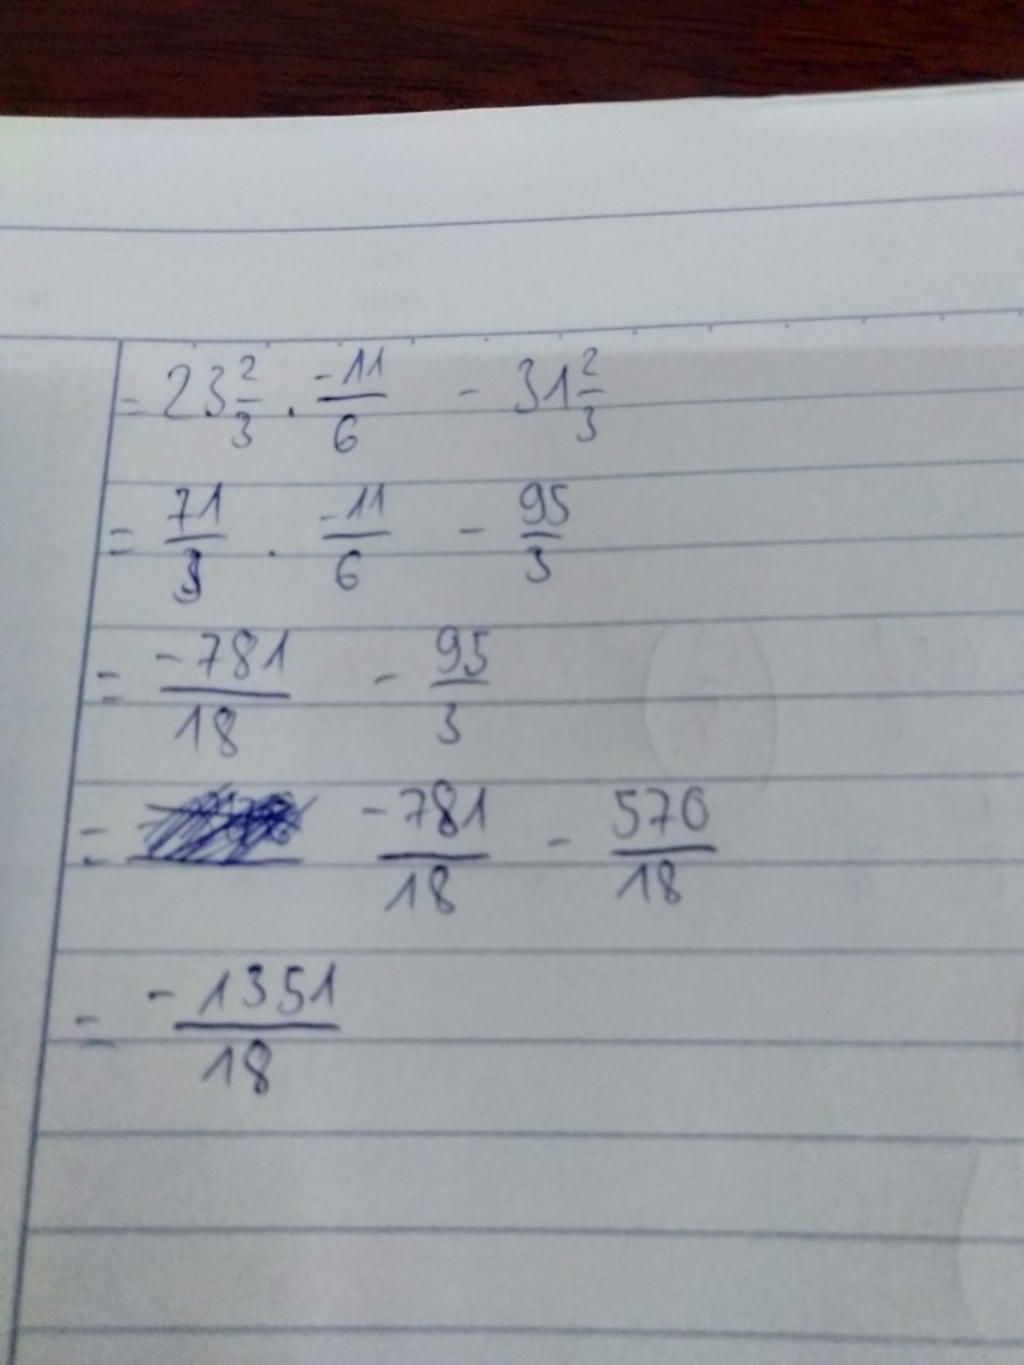 = 23 2/3 . -11/6 - 31 2/3
= 71/3 . -11/6 - 95/3
= -781/18 - 95/3
= -781/18 - 570/18
= -1351/18